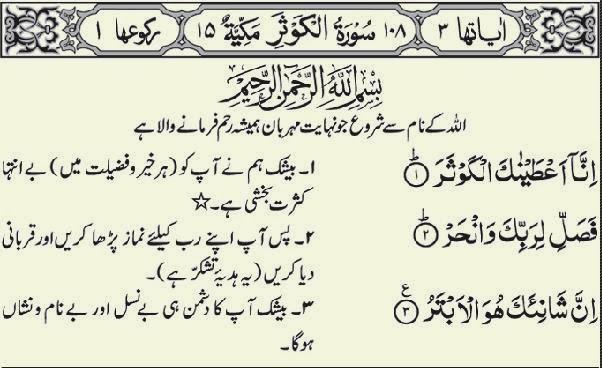 اٰیاتها ٣ ١٠٨ سُوْرَةُ الْكَوْثَرِ مَكِّيَّةٌ ١٥ رکوعها ١
بِسْمِ اللهِ الرَّحْمٰنِ الرَّحِيْمِ
اللہ کے نام سے شروع جو نہایت مہربان ہمیشہ رحم فرمانے والا ہے
اِنَّاۤ اَعْطَيْنٰكَ الْكَوْثَرَؕ ﴿١﴾
١۔ بیشک ہم نے آپ کو (ہر خیر و فضیلت میں) بے انتہا
کثرت بخشی ہے۔☆
فَصَلِّ لِرَبِّكَ وَانْحَرْؕ ﴿٢﴾
٢۔ پس آپ اپنے رب کیلئے نماز پڑھا کریں اور قربانی
دیا کریں (یہ ہدیۂ تشکّر ہے)۔
اِنَّ شَانِئَكَ هُوَ الْاَبْتَرُ ﴿٣﴾ ع
٣۔ بیشک آپ کا دشمن ہی بے نسل اور بے نام و نشاں
ہوگا۔